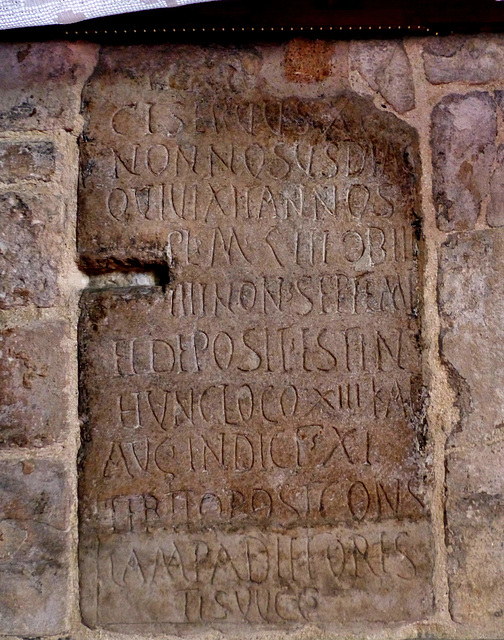 CI SERVVS X
NONNOSVS DI
QVI VIXIT ANNOS
PL M CIII OBII
IIII NON SEPTEM
ET DEPOSIT EST IN
HVNC LOCO XIII KA
AVG INDICT XI
POST CONS
LAMPADI ET ORIS
TIS VVCC